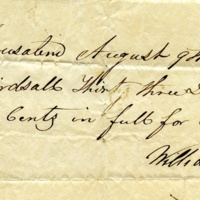 usatend August 9th
rdsall Thirty three D
Cents in full for
Willia